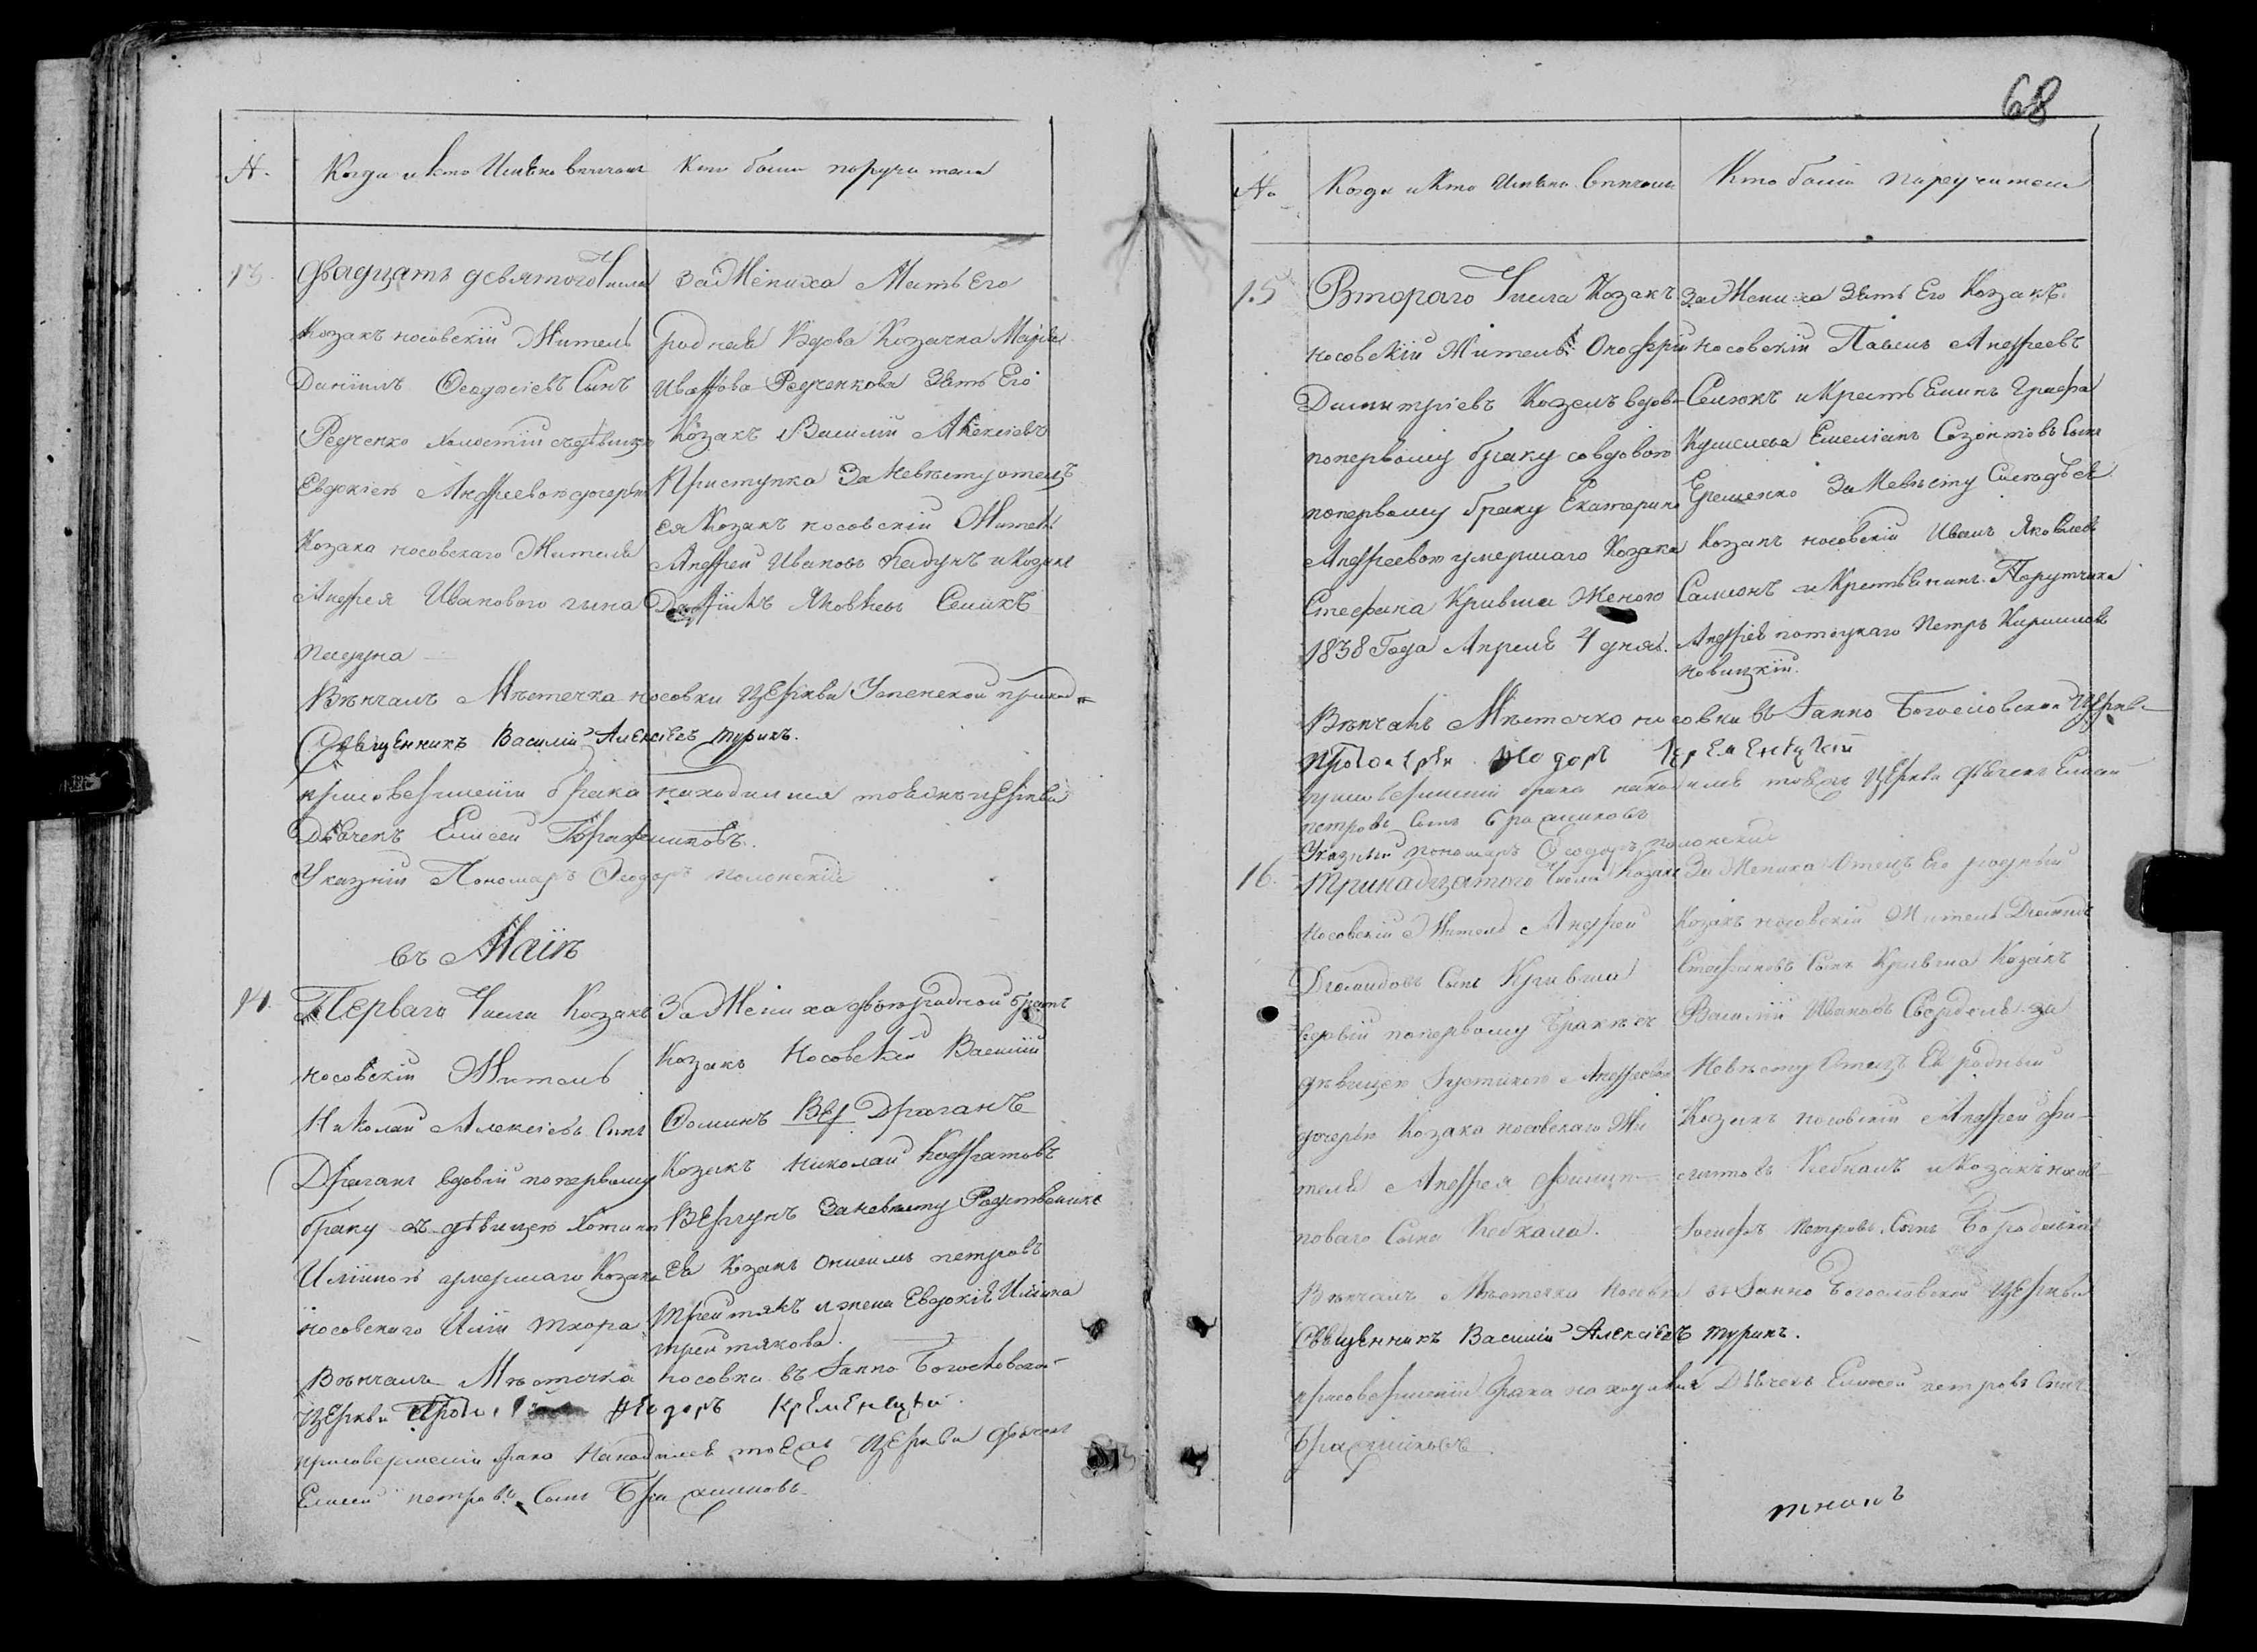 68
№.
Когда и кто Именно венчаны
Кто были поручители
13.
Двадцать девятого Числа
Козакъ носовскій Житель
Даніилъ Ѳеодосіевъ Сынъ
Редченко холостій съ девицею
Евдокіею Андреевою дочерью
Козака носовскаго Жителя
Андрея Иванового сына
Падуна
За Жениха Мать Его
родная Вдова Козачка Марія
Иванова Редченкова Зять Его
Козакъ Василій Алексіевъ
Приступка За Невѣсту отецъ
ея Козакъ носовскій Житель
Андрей Ивановъ Падунъ и Козакъ
Даніилъ Яковлевъ
Вѣнчалъ Мѣстечка носовки Церкви Успенской приход
Священникъ Василій Алексіевъ Турикъ.
при совершеніи брака находились тоеяжъ Церкви
Дьячекъ Елисей Бражниковъ.
Указній Пономаръ Ѳеодоръ Полонскій
въ Маіѣ
14.
Перваго Числа Козакъ
носовскій Житель
Николай Алексіевъ Сынъ
Драганъ вдовій по первому
браку съ дѣвицею
умершаго Козака
носовского Иліи Тхора
За Жениха двоюродной братъ
Козакъ Носовскій Василій
Ѳоминъ Вер Драганъ
Козакъ Николай Кодратовъ
Вергунъ За невѣсту Родственникъ
Ея Козакъ Онисимъ петровъ
Третякъ и жена Евдокія
третякова.
Вѣнчалъ Мѣстечка Носовки въ Іанно Богословской
Церкви Ѳеодоръ Кременецкій.
при совершеніи брака Находился тоеяжъ Церкви Дьячекъ
Елисей петровъ Сынъ Бражниковъ
№
Когда и Кто Именно Венчаны
Кто были поручители
15
Втораго Числа Козакъ
носовскій Житель Онофрій
Димитріевъ Козелъ вдовій
по первому браку со вдовою
по первому браку Екатериною
Андреевою умершаго Козака
Стефана Кривши Женою
1838 Года Апреля 4 дня.
За Жениха Зять Его Козакъ
носовскій Павелъ Андреевъ
и Крестьянинъ Графа
Кушелева Емеліанъ Созонтовъ Сынъ
Ерещенко За Невѣсту Сосѣдъ ея
Козакъ носовскій Иванъ Яковлевъ
и Крестьянинъ Порутчика
Андрея потоцкаго Петръ Кириловъ
новицкій.
Вѣнчалъ Мѣстечка носовки въ Іанно Богословской Церкви
Протоіерей Ѳеодоръ Кременецкій
при совершеніи брака находилъ тоеяжъ Церкви Дьячекъ Елисей
петровъ Сынъ Бражниковъ
Указный пономаръ Ѳеодоръ полонскій
16.
Тринадцатого Числа Козакъ
Носовскій Житель Андрей
Діомидовъ Сынъ Кривша
вдовій по первому браку съ
дѣвицею Іустиною Андреевою
дочерью Козака носовскаго Жи
теля Андрея Филип
поваго Сына Кебкала.
За Жениха Отецъ Его родный
Козакъ носовскій Житель Діомидъ
Стефановъ Сынъ Кривша Козакъ
Василій Ивановъ Свердель за
Невѣсту Отецъ Ея родный
Козакъ носовскій Андрей Фи-
липовъ Кебкалъ и Козакъ носов
Іосифъ Петровъ Сынъ
Вѣнчалъ Мѣстечка Носовки въ Іанно Богословской Церкви
Священникъ Василій Алексіевъ Турикъ.
при совершеніи брака находился Дьячекъ Елисей петровъ Сынъ
Бражниковъ